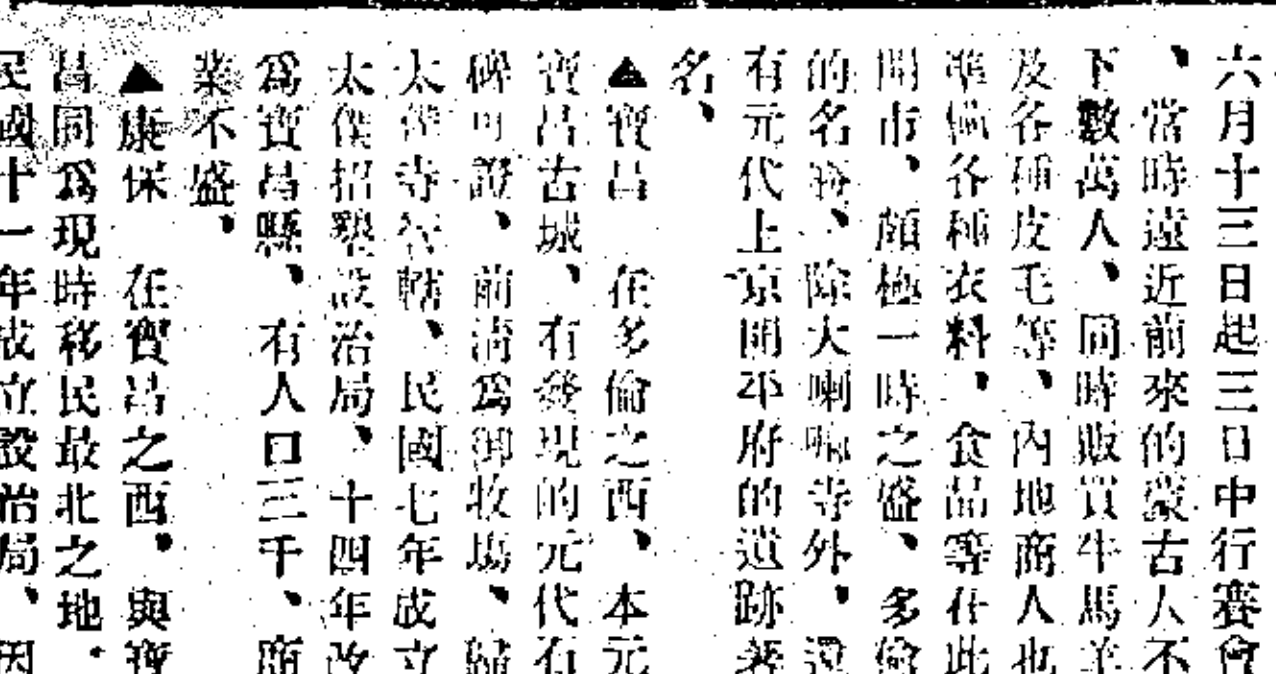 六月十三日起三日中行賽會
、當時遠近前來的蒙古人不
下數萬人、同時販買牛馬羊
及各種皮毛等、內地商人也
準備各種衣料、食品等在此
開市、頗極一時之盛、多倫
的名、除大喇嘛寺外、還
有元代上京開平府的遺跡著
名、
▲寶昌　在多倫之西、本元
寶昌古城、有發現的元代石
碑可證、前清爲御牧場、歸
太僕寺管轄、民國七年成立
太僕招墾設治局、十四年改
爲寶昌縣、有人口三千、商
業不盛、
▲康保　在寶昌之西、與寶
昌同爲現時移民最北之地、
民國十一年成立設治局、因